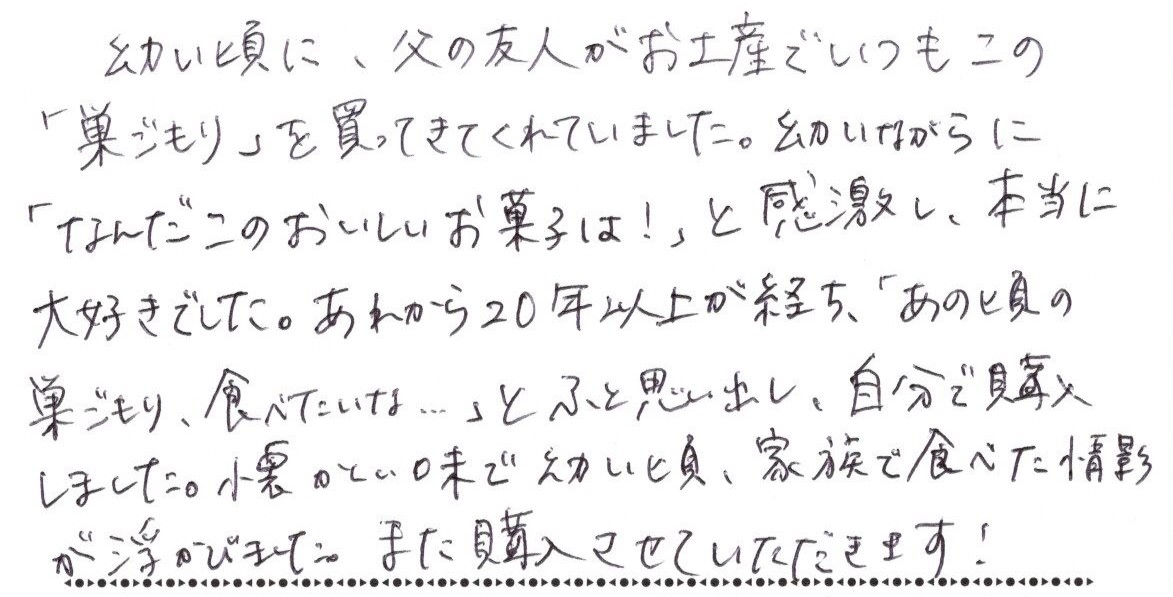 幼い頃に、父の友人がお土産でいつもこの
「巣ごもり」を買ってきてくれていました。幼いながらに
「なんだこのおいしいお菓子は!」と感激し、本当に
大好きでした。あれから20年以上が経ち、「あの頃の
巣ごもり、食べたいな…」とふと思い出し、自分で購入
しました。懐かしい味で幼い頃、家族で食べた情景
が浮かびました。また購入させていただきます!